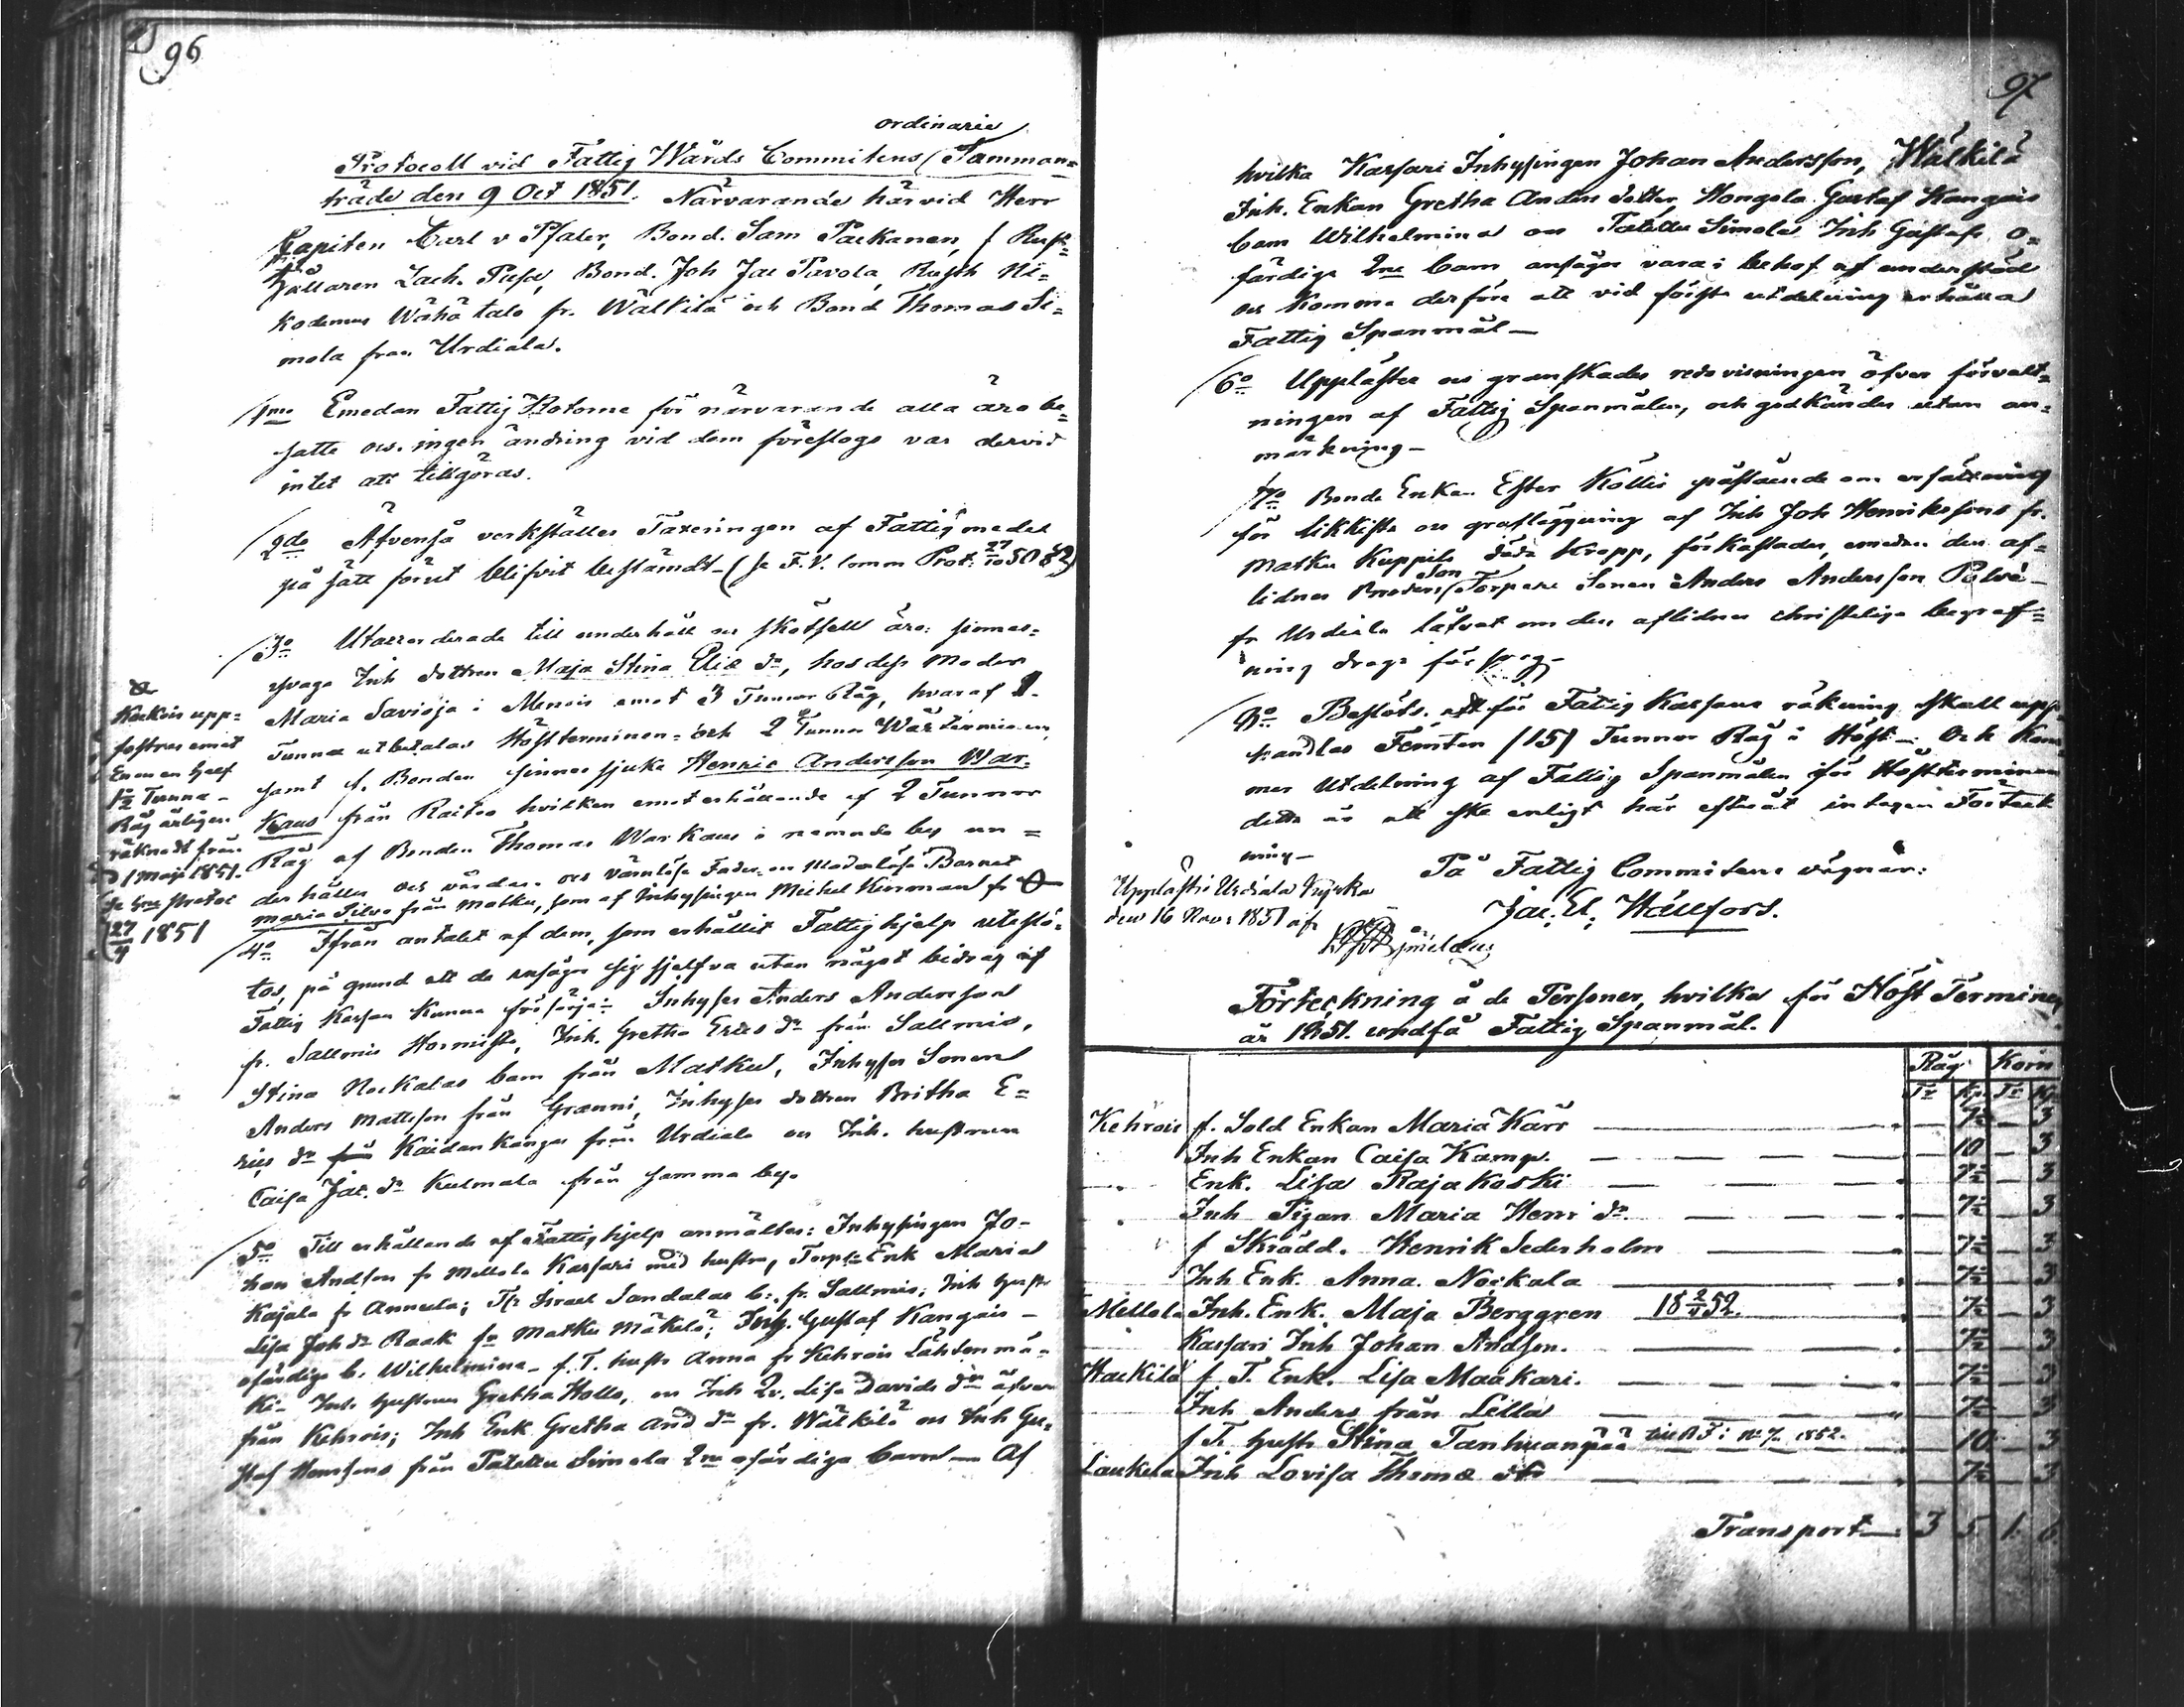 96
ordinarie
Protocoll vid Fattig Wårds Commitens Samman=
träde den 9 Oct 1851. Närvarande härvid Herr
Kapiten Carl v Pfaler, Bond. Sam Paekanen, f Rust=
hållaren Zach. Pusa, Bond. Joh Jac Pavola, Rusth Ni=
kodemus Wähä talo fr. Wälkilä och Bond Thomas Si=
mola från Urdiala.
1mo Emedan Fattig Rotorne för närvarande alla äro be=
satte och ingen ändring vid dem föreslogs var dervid
intet att tillgöras.
2do Äfvenså verkställes Taxeringen af Fattig medel
på sätt förut blifvit bestämdt (se F.V. Comm Prot: 27/10 50 § 2)
3o Utaccorderade till underhåll och skötsell äro: sinnes=
svaga Inh dottren Maja Stina Elie dr, hos dess moder
Maria Savioja i Menois emot 3 Tunnor Råg, hvaraf 1.
Tunna utbetalas Höstterminen och 2 Tunnor Wårterminen,
samt f. Bonden sinnessjuke Henric Andersson War=
kaus från Raitoo hvilken emot erhållande af 2 Tunnor
Råg af Bonden Thomas Warkaus i nämnde by un=
derhålles och vårdas. och värnlösa Fader och Moderlösa Barnet
Maria Silvo från Matku, som af Inhysingen Michel Kinnman fr
Kerkois upp=
fostras emot
En en en half
1½ Tunna
Råg årligen
räknadt från
d 1 Maji 1851.
27/4 1851
4o Ifrån antalet af dem, som erhållit Fattighjelp uteslö=
tos, på grund att de ansågos sig sjelfva utan något bidrag af
Fattig Kassan kunna försörja: Inhyses Anders Andersson
fr. Salmis Hormisto, Inh. Gretha Erics dr från Salmis,
Stina Nockalas barn från Matku, Inhyses Sonen
Anders Mattsson från Grænni, Inhyses dottren Britha E=
rics dr Kaidankangas från Urdiala och Inh. hustrun
Caisa Jac. dr Kulmala från samma by.
5o Till erhållande af Fattighjelp anmältes: Inhysingen Jo=
han Andson fr Mellola Karsari med hustru, Torp: Enk Maria
Kajala fr Annula; Israel Sandalas b: fr. Salmis; Inh hustr
Lisa Joh dr Raak fr Matku Mäkelä; Inh. Gustaf Kangais
ofärdiga b. Wilhelmina f. T. hustr Anna fr Kehrois Lähtenmä=
ki Inh. hustrun Gretha Hollo, och Inh Qv. Lisa Davids dr äfven
från Kehrois; Inh Enk Gretha And dr fr. Wälkilä och Inh Gu=
staf Henrssons från Simola 2ne ofärdiga barn — Af
97
hvilka Karsari Inhysingen Johan Andersson, Wälkilä
Inh. Enkan Gretha Anders dotter, Hongola Gustaf Kangais
barn Wilhelmina och Simola Inh Gustafs o=
färdiga 2ne barn ansågos vara i behof af understöd
och komma derföre att vid första utdelning erhålla
Fattig Spanmål —
6o Upplästes och granskades redovisningen öfver förvalt=
ningen af Fattig Spanmålen, och godkändes utan an=
märkning —
7o Bonde Enkan Ester Köllis påstående om ersättning
för likkista och grafläggning af Inh Joh Henrikssons fr.
Matku Kuppila döda kropp, förkastades, emedan den af=
lidnes Broders Son Torpare Sonen Anders Andersson Palvä
fr Urdiala låfvat om den aflidnes christeliga begraf=
ning draga försorg —
8o Beslöts, att för Fattig Kassans räkning skall upp=
handlas Femton (15) Tunnor Råg i Höst — Och kom=
mer Utdelning af Fattig Spanmålen för Höstterminen
detta år att ske enligt här efteråt intagen Förteck
ning —
På Fattig Commiteens vägnar:
Jac. El. Hällfors.
Uppläst i Urdiala Kyrka
den 16 Nov: 1851 af
Förteckning å de Personer, hvilka för Höst Terminen
år 1851. undfå Fattig Spanmål.
Råg Korn
Tr Kp. Tr Kp.
Kehrois f. Sold Enkan Maria Kärr — 7½ — 3
Inh Enkan Caisa Kamp. — 10 — 3
Enk. Lisa Rajakoski — 7½ — 3
Inh Pigan Maria Henr dr. — 7½ — 3
f Skrädd. Henrik Sederholm — 7½ — 3
Inh Enk. Anna Nockala — 7½ — 3
Mellola Inh. Enk. Maja Berggren 18 2/4 52. — 7½ — 3
Karsari Inh Johan Andson. — 7½ — 3
Haekilä f T. Enk. Lisa Maakari. — 7½ — 3
Inh Anders från Lilla — 7½ — 3
f T. hustr Stina Tanhuanpää 1852. — 10 — 3
Laukela Inh Lovisa Thomæ dr — 7½ — 3
Transport — 3 5 1. 6.